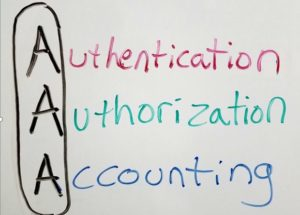 Authentication
Authorization
Accounting